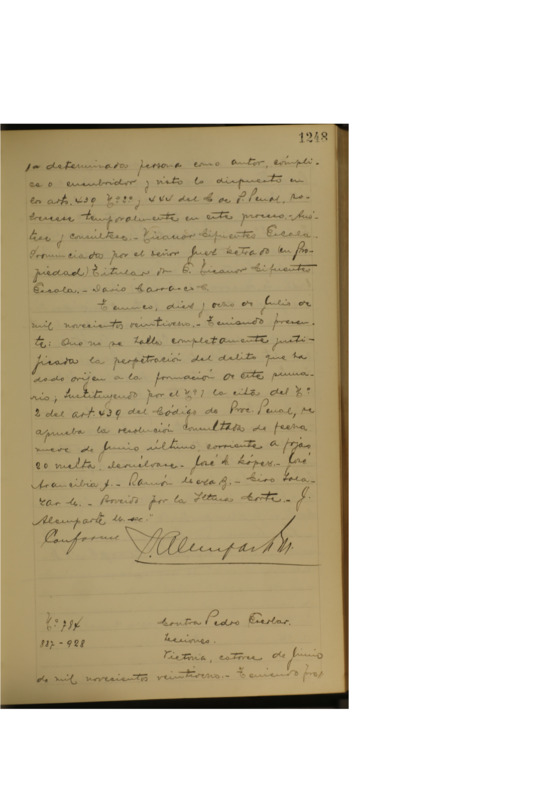 1248
determinada persona como autor, cómpli-
ce o encubridor y visto lo dispuesto en
los arts. 439 N° 2° y 444 del C. de P. Penal, so-
breséese temporalmente en este proceso.- Anó-
tese y consúltese.- Nicanor Cifuentes Escala.
Pronunciado por el señor Juez Letrado en Pro-
piedad Titular don E. Nicanor Cifuentes
Escala.- Darío Carrasco C
Temuco, diez y ocho de Julio de
mil novecientos veintiuno.- Teniendo presen-
te: Que no se halla completamente justi-
ficada la perpetración del delito que ha
dado origen a la formación de este suma-
rio, sustituyendo por el N° 1 la cita del N°
2 del art. 439 del Código de Proc. Penal, se
aprueba la resolución consultada de fecha
nueve de Junio último, corriente a fojas
20 vuelta. Devuélvase.- José L. López.- José
Arancibia A.- Ramón
- Proveído por la Iltma. Corte.- J.
Alemparte
Conforme
J. Alemparte M.
N° 784
887-928
Contra Pedro Escobar.
Lesiones.
Victoria, catorce de Junio
de mil novecientos veintiuno.- Teniendo pres